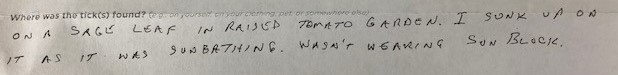 Where was the tick(s) found? (e.g. on yourself, on your clothing, pet, or somewhere else)
ON A SAGE LEAF IN RAISED TOMATO GARDEN. I SUNK UP ON
IT AS IT WAS SUNBATHING. WASN'T WEARING SUN BLOCK.